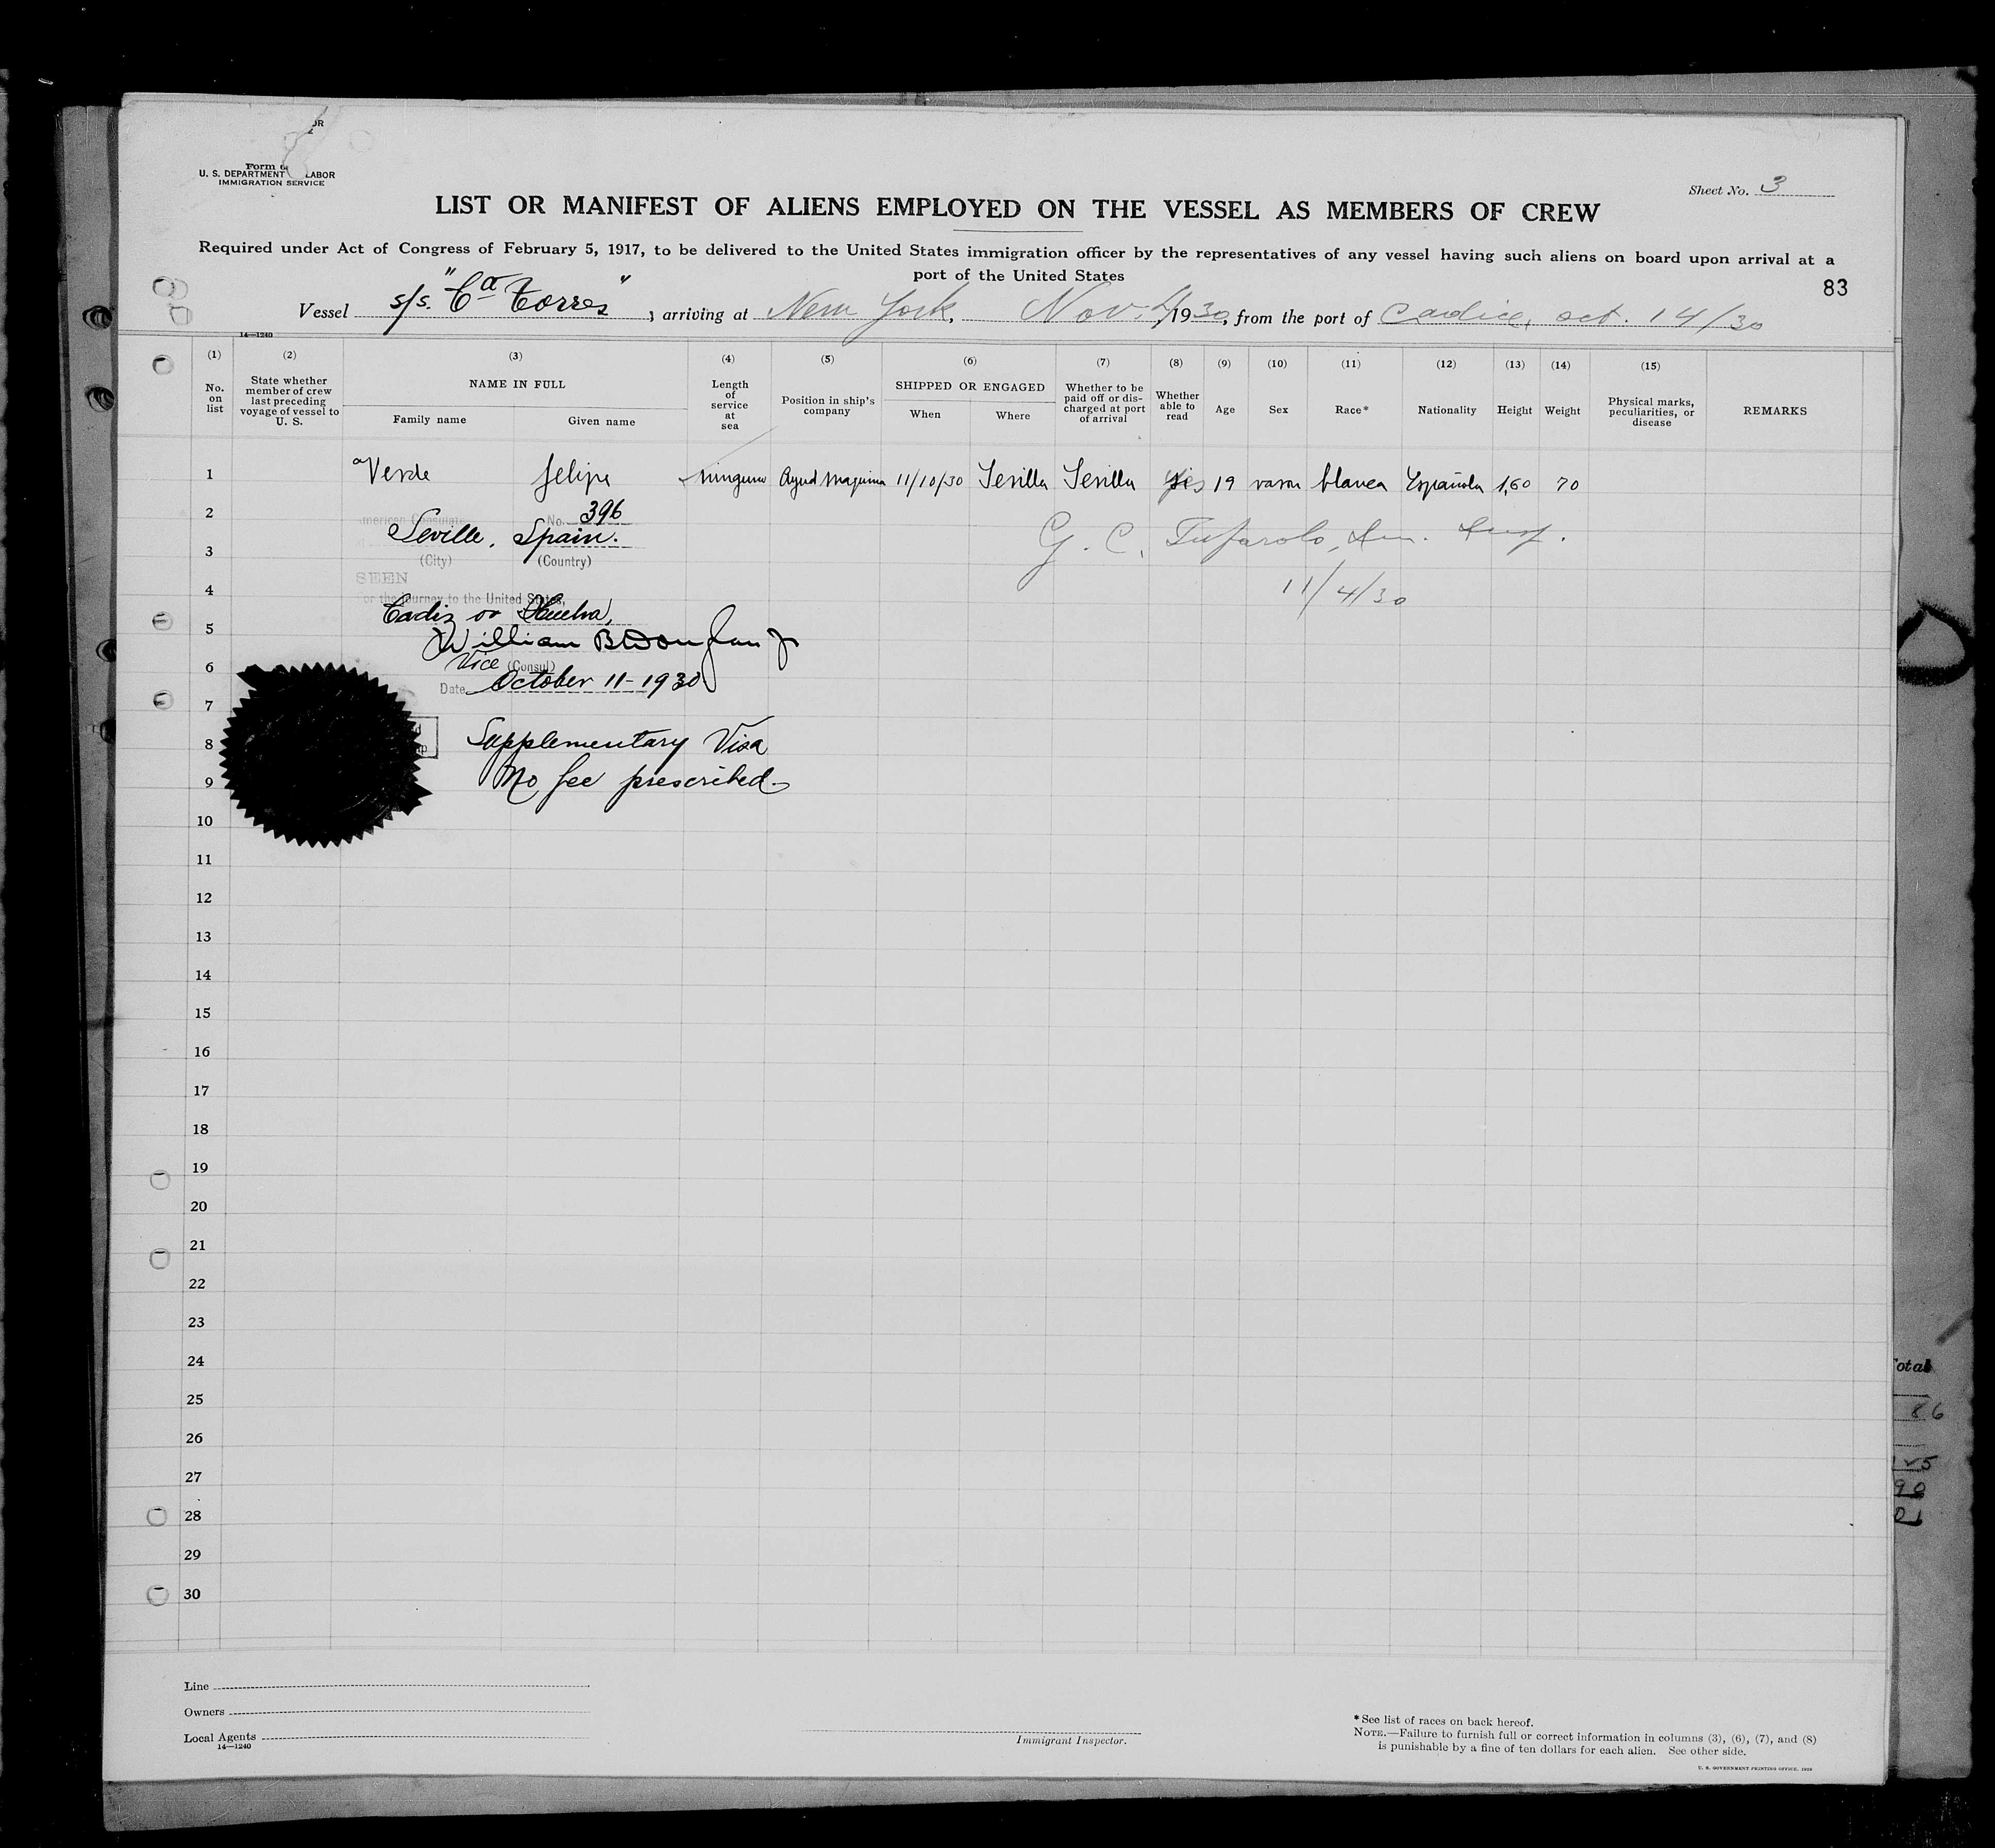 Form
U. S. DEPARTMENT LABOR
IMMIGRATION SERVICE
Sheet No. 3
LIST OR MANIFEST OF ALIENS EMPLOYED ON THE VESSEL AS MEMBERS OF CREW
Required under Act of Congress of February 5, 1917, to be delivered to the United States immigration officer by the representatives of any vessel having such aliens on board upon arrival at a
port of the United States
83
Vessel s/s. "Cª Torres", arriving at New York, Nov. 4, 1930, from the port of Cadice, oct. 14/30
14—1240
(1) (2) (3) (4) (5) (6) (7) (8) (9) (10) (11) (12) (13) (14) (15)
No. on list
State whether member of crew last preceding voyage of vessel to U. S.
NAME IN FULL
Family name Given name
Length of service at sea
Position in ship's company
SHIPPED OR ENGAGED
When Where
Whether to be paid off or discharged at port of arrival
Whether able to read
Age
Sex
Race*
Nationality
Height
Weight
Physical marks, peculiarities, or disease
REMARKS
1 Verde Felipe ninguno Ayud Maquina 11/10/30 Sevilla Sevilla Yes 19 varon blanca Española 1,60 70
2 American Consulate No. 396
Seville, Spain.
3 (City) (Country)
G. C. Tufarolo, Im. Insp.
11/4/30
SEEN
4 For the journey to the United States,
Cadiz or Huelva,
5 William B Douglass Jr
6 Vice (Consul)
Date October 11-1930
7
8 Supplementary Visa
9 No fee prescribed
10
11
12
13
14
15
16
17
18
19
20
21
22
23
24
25
26
27
28
29
30
Total
86
Line
Owners
Local Agents
14—1240
Immigrant Inspector.
* See list of races on back hereof.
NOTE.—Failure to furnish full or correct information in columns (3), (6), (7), and (8)
is punishable by a fine of ten dollars for each alien. See other side.
U. S. GOVERNMENT PRINTING OFFICE, 1929